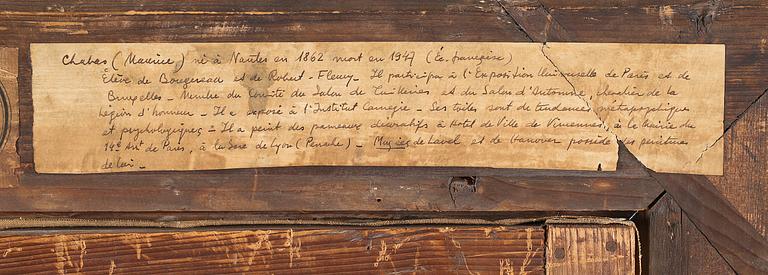 Chabas (Maurice) né à Nantes en 1862 mort en 1947 (Ec. française)
Élève de Bougereau et de Robert-Fleury - Il participa à l'Exposition Universelle de Paris et de
Bruxelles - Membre du Comité du Salon de Tuileries et du Salon d'Automne, chevalier de la
Légion d'honneur - Il a exposé à l'Institut Carnegie - Ses toiles sont de tendances métapsychiques
et psychologiques - Il a peint des panneaux décoratifs à Hotel de Ville de Vincennes, à la Mairie du
14e Arrt de Paris, à la Gare de Lyon (Perrache) - Musées de Laval et de Hanovre possède des peintures
de lui -